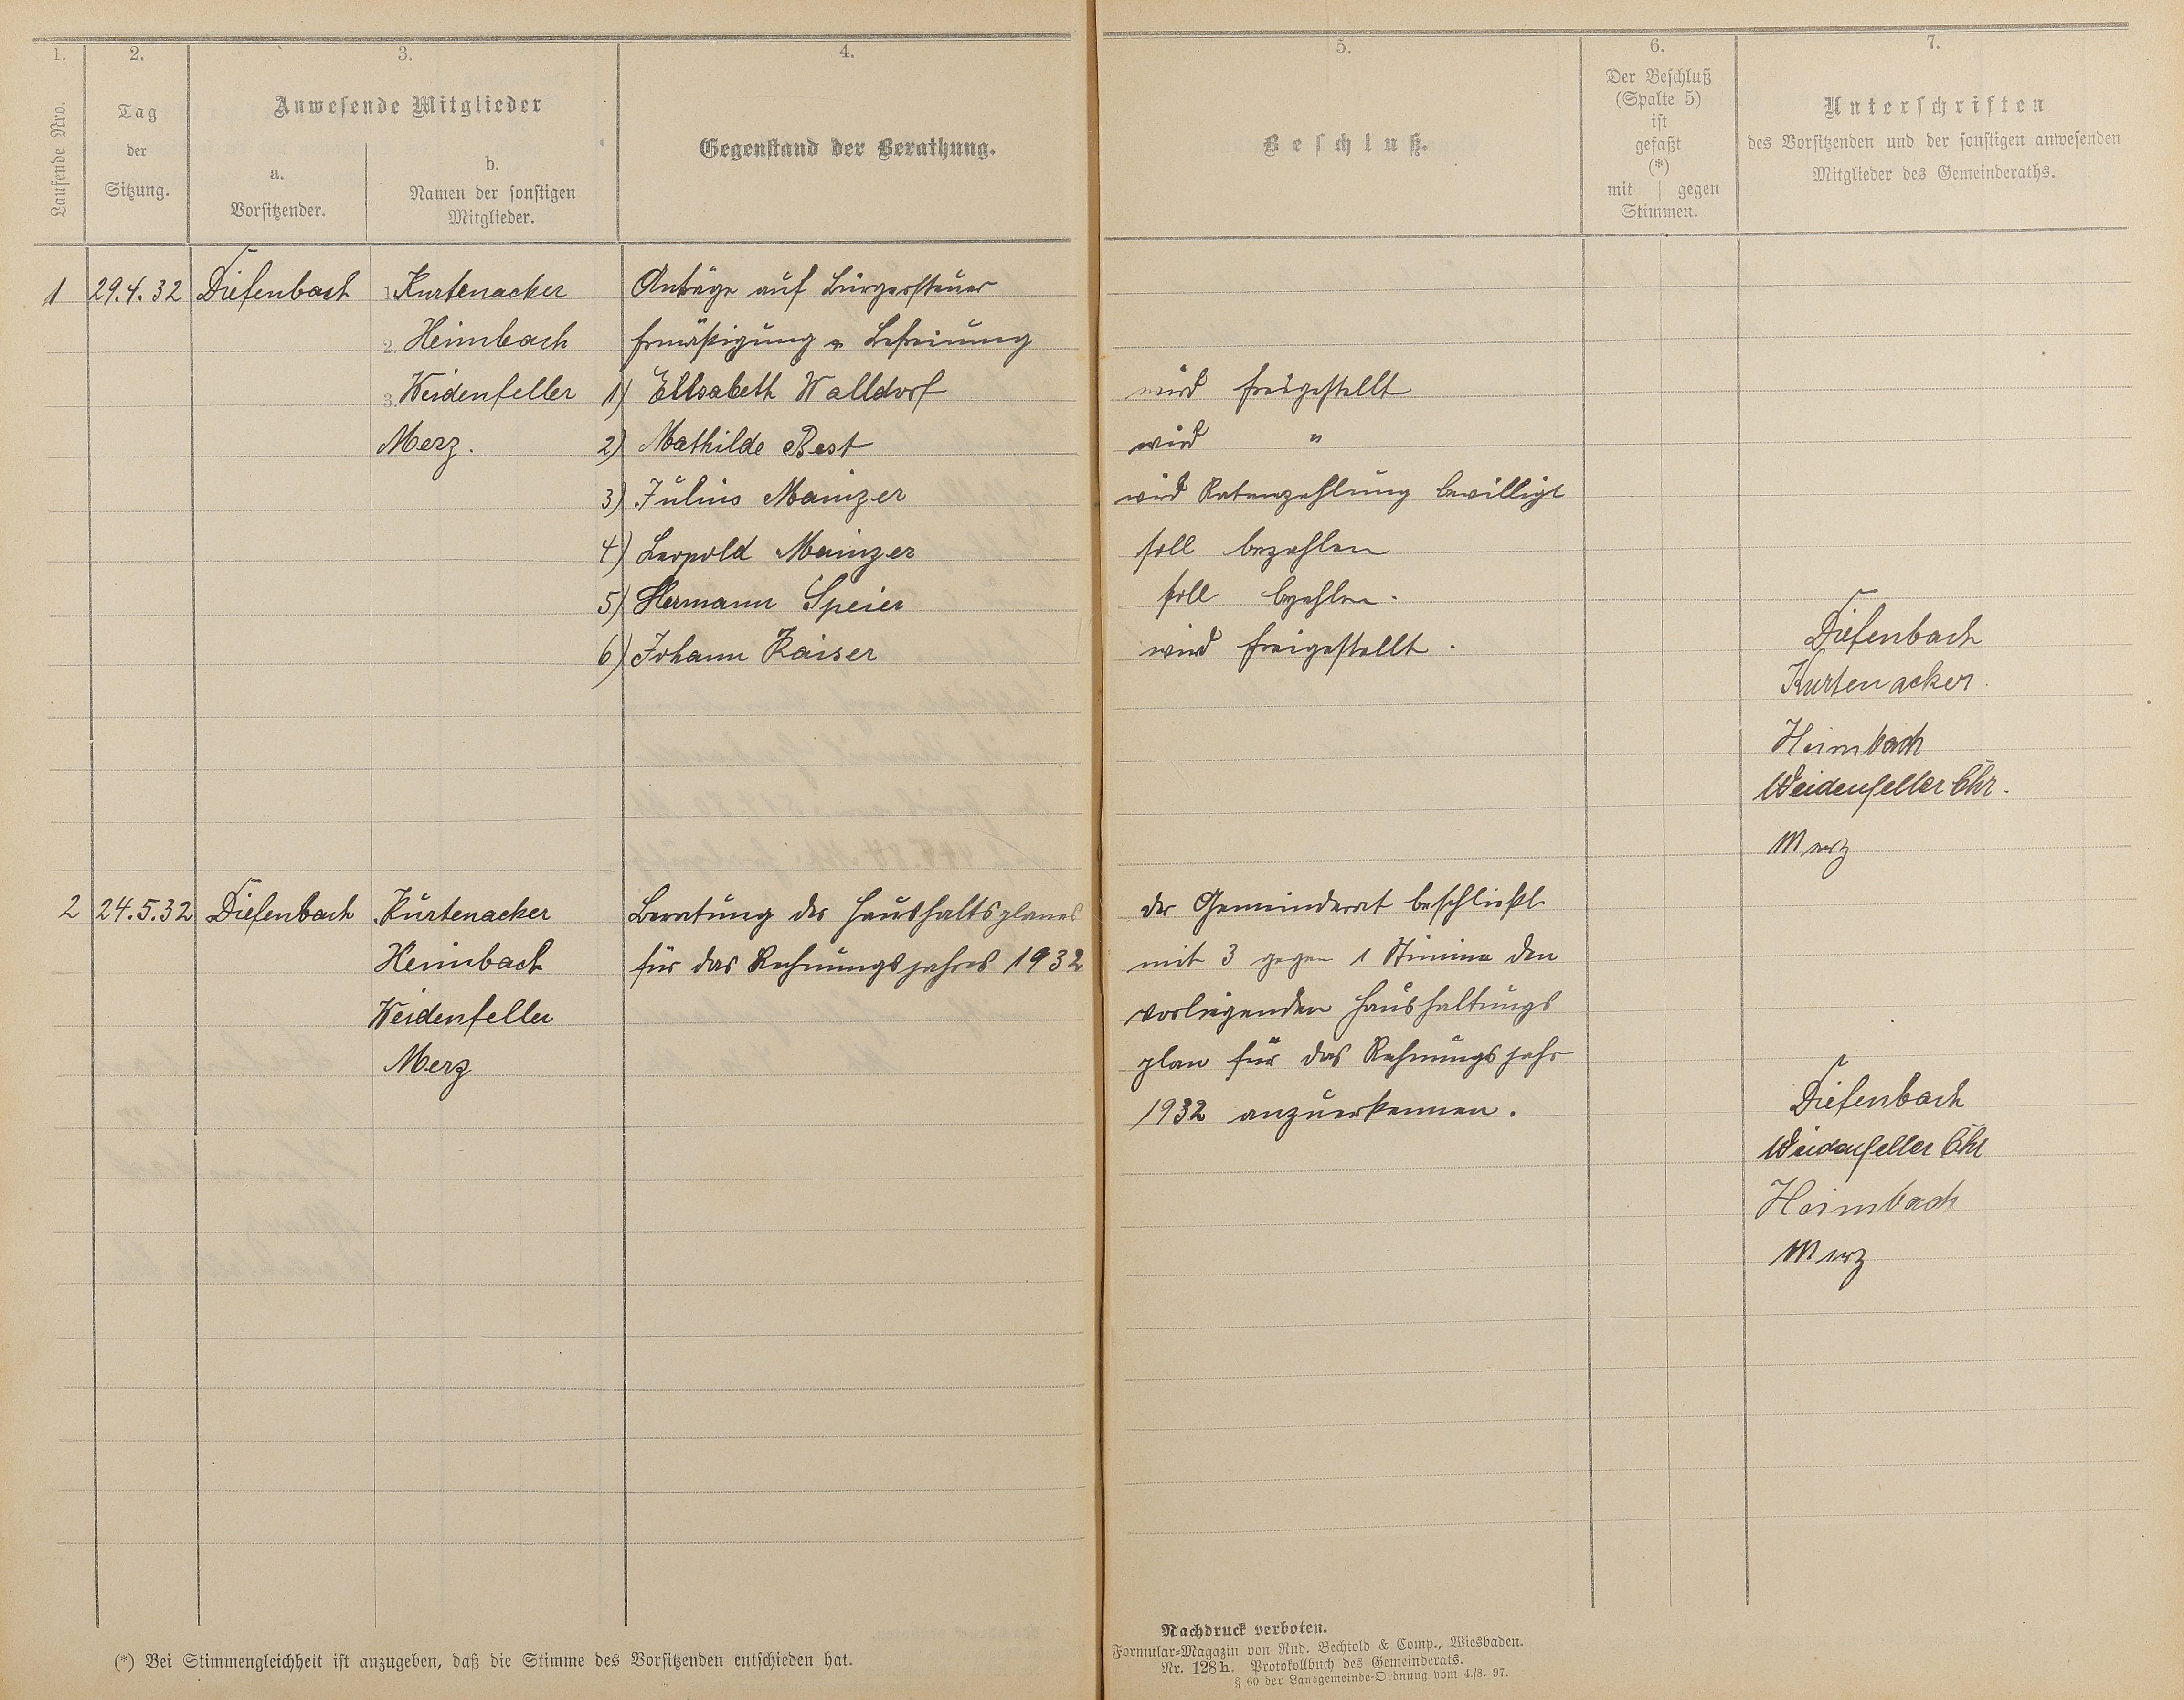 1.
2.
3.
4.
Laufende Nro.
Tag
der
Sitzung.
Anwesende Mitglieder
a.
Vorsitzender.
b.
Namen der sonstigen
Mitglieder.
Gegenstand der Berathung.
1 29.4.32 Diefenbach 1. Kurtenacker Anträge auf Bürgersteuer
2. Heimbach Ermäßigung u Befreiung
3. Weidenfeller 1) Elisabeth Walldorf
Merz. 2) Mathilde Best
3) Julius Mainzer
4) Leopold Mainzer
5) Hermann Speier
6) Johann Kaiser
2 24.5.32 Diefenbach Kurtenacker Beratung des Haushaltsplanes
Heimbach für das Rechnungsjahres 1932
Weidenfeller
Merz
(*) Bei Stimmengleichheit ist anzugeben, daß die Stimme des Vorsitzenden entschieden hat.
5.
6.
7.
Beschluß.
Der Beschluß
(Spalte 5)
ist
gefaßt
(*)
mit | gegen
Stimmen.
Unterschriften
des Vorsitzenden und der sonstigen anwesenden
Mitglieder des Gemeinderaths.
wird freigestellt
wird "
wird Ratenzahlung bewilligt
soll bezahlen
soll bezahlen.
wird freigestellt.
Diefenbach
Kurtenacker
Heimbach
Weidenfeller Chr.
Merz
der Gemeinderat beschließt
mit 3 gegen 1 Stimme den
vorliegenden Haushaltungs
plan für das Rechnungsjahr
1932 anzuerkennen.
Diefenbach
Weidenfeller Chr
Heimbach
Merz
Nachdruck verboten.
Formular-Magazin von Rud. Bechtold & Comp., Wiesbaden.
Nr. 128 h. Protokollbuch des Gemeinderats.
§ 60 der Landgemeinde-Ordnung vom 4./8. 97.